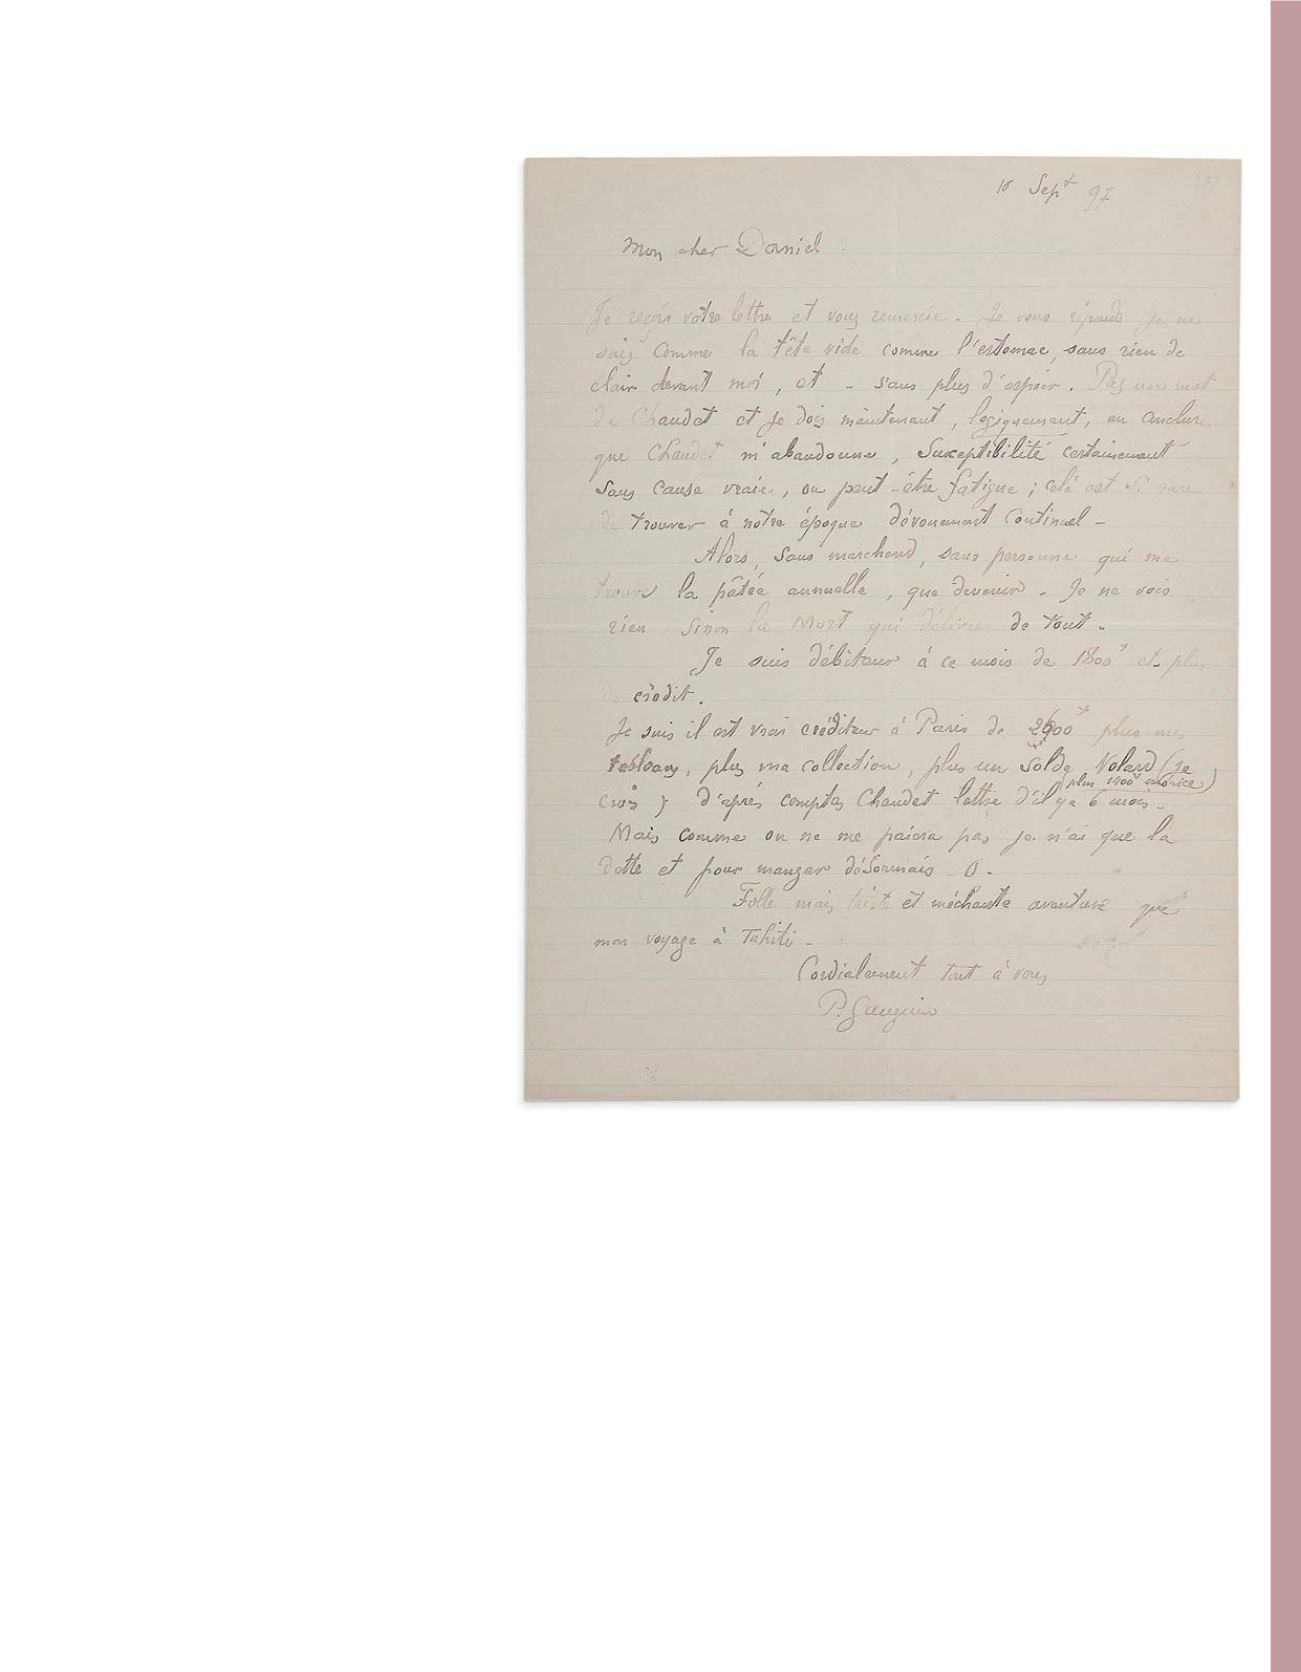 10 Sept 97
Mon cher Daniel
Je reçois votre lettre et vous remercie. Je vous réponds je ne
sais comme la tête vide comme l'estomac, sans rien de
clair devant moi, et - sans plus d'espoir. Pas un mot
de Chaudet et je dois maintenant, logiquement, en conclure
que Chaudet m'abandonne, Susceptibilité certainement
sans cause vraie, ou peut-être fatigue ; celà est si rare
de trouver à notre époque dévouement continuel -
Alors, sans marchand, sans personne qui me
trouve la pâtée annuelle, que devenir. Je ne vois
rien sinon la Mort qui délivre de tout.
Je suis débiteur à ce mois de 1800f et plus
de crédit.
Je suis il est vrai créditeur à Paris de 2600f plus mes
tableaux, plus ma collection, plus un solde Volard (je
plus morice)
crois) d'après comptes Chaudet lettre d'il y a 6 mois -
Mais comme on ne me paiera pas je n'ai que la
dette et pour manger désormais - 0 -
Folle mais triste et méchante aventure que
mon voyage à Tahiti -
Cordialement tout à vous
P. Gauguin